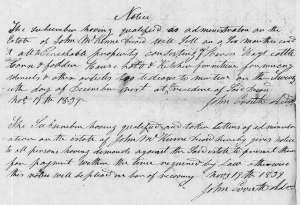 Notice
The subscriber having qualified as administrator on the
Estate of John McKinne will Sell on a Six months and
all perishable property consisting of Horses Hogs cattle
Corn & fodder House hold & Kitchen furniture farming
utensils & other articles to tedious to mention on the
th day of December next at Residence of
Nov 19th 1839. John
The Subscriber having qualified and taken letters of administra
tion on the estate of John McKinne hereby gives notice
to all persons having demands against the Said estate to present them
for payment within the time required by Law otherwise
this notice will be plead in bar of recovery Nov 19th 1839
John